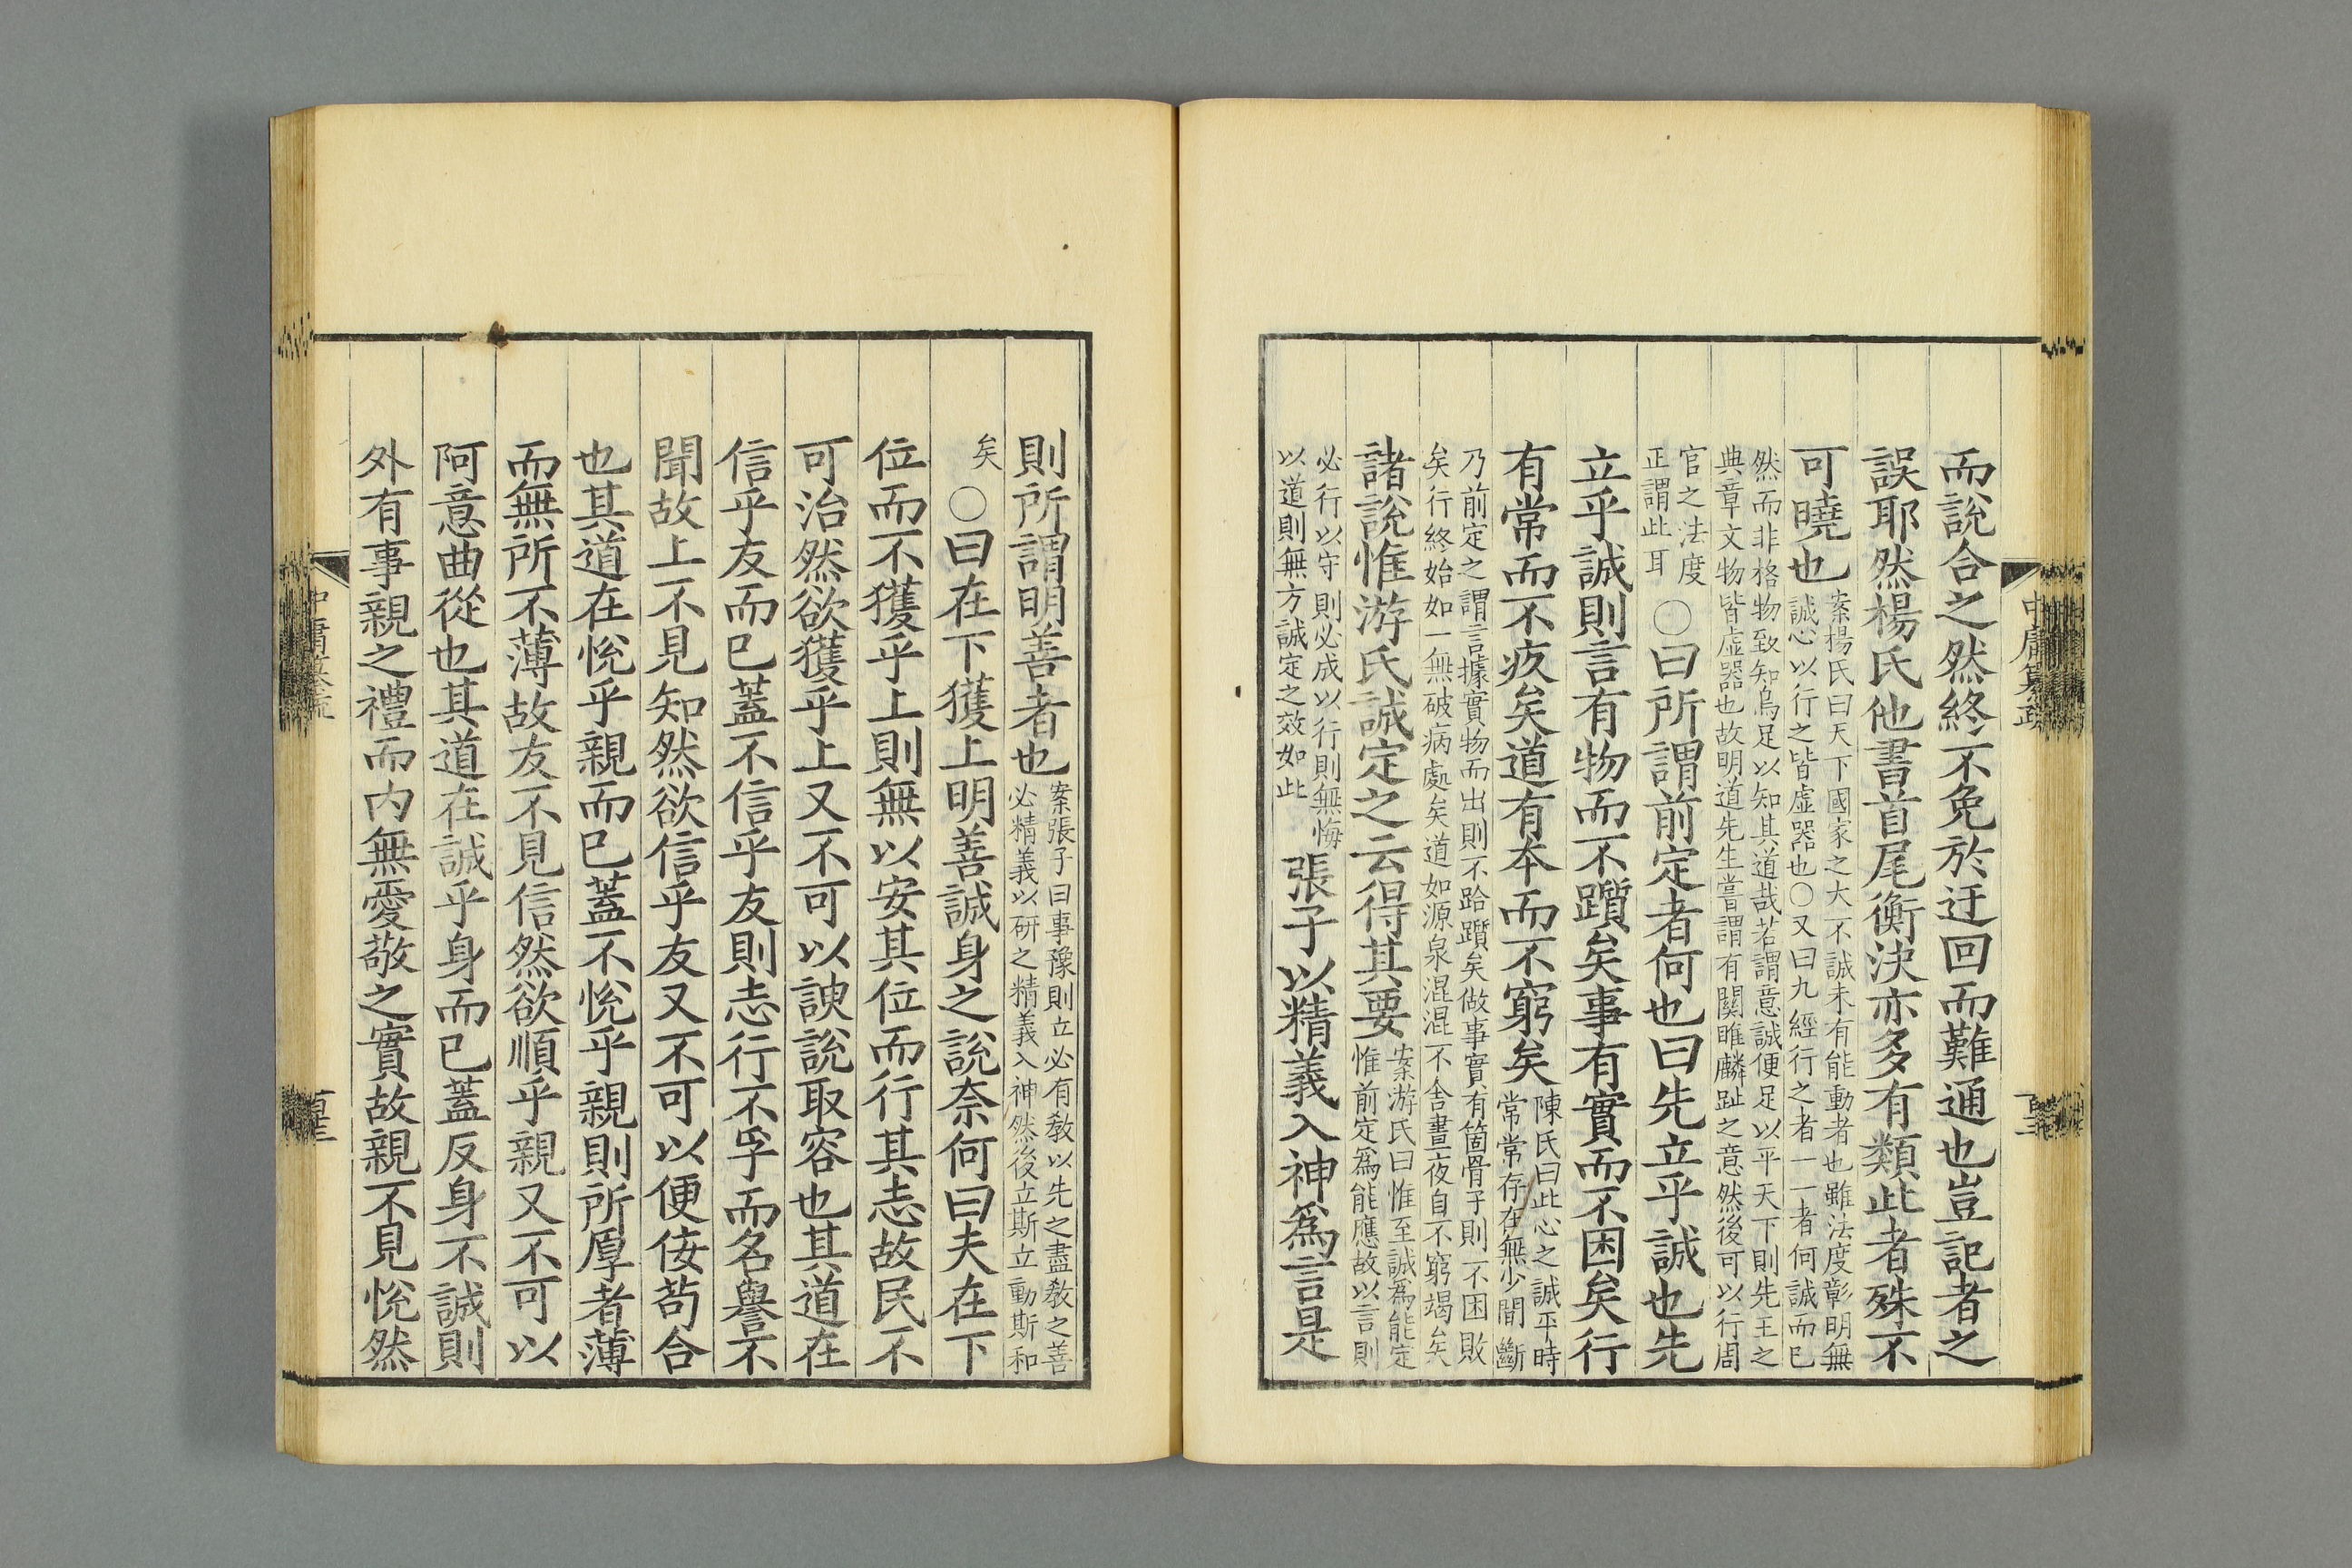 而說合之然終不免於迂回而難通也豈記者之
誤耶然楊氏他書首尾衡決亦多有類此者殊不
可曉也
案楊氏曰天下國家之大不誠未有能動者也雖法度彰明無
誠心以行之皆虛器也○又曰九經行之者一一者何誠而已
然而非格物致知烏足以知其道哉若謂意誠便足以平天下則先王之
典章文物皆虛器也故明道先生嘗謂有關雎麟趾之意然後可以行周
官之法度
正謂此耳
○曰所謂前定者何也曰先立乎誠也先
立乎誠則言有物而不躓矣事有實而不困矣行
有常而不疚矣道有本而不窮矣
陳氏曰此心之誠平時
常常存在無少間斷
乃前定之謂言據實物而出則不跲躓矣做事實有箇骨子則不困敗
矣行終始如一無破病處矣道如源泉混混不舍晝夜自不窮竭矣
諸說惟游氏誠定之云得其要
案游氏曰惟至誠爲能定
惟前定爲能應故以言則
必行以守則必成以行則無悔
以道則無方誠定之效如此
張子以精義入神爲言是
則所謂明善者也
案張子曰事豫則立必有敎以先之盡敎之善
必精義以硏之精義入神然後立斯立動斯和
矣
○曰在下獲上明善誠身之說奈何曰夫在下
位而不獲乎上則無以安其位而行其志故民不
可治然欲獲乎上又不可以諛說取容也其道在
信乎友而已蓋不信乎友則志行不孚而名譽不
聞故上不見知然欲信乎友又不可以便佞苟合
也其道在悅乎親而已蓋不悅乎親則所厚者薄
而無所不薄故友不見信然欲順乎親又不可以
阿意曲從也其道在誠乎身而已蓋反身不誠則
外有事親之禮而內無愛敬之實故親不見悅然